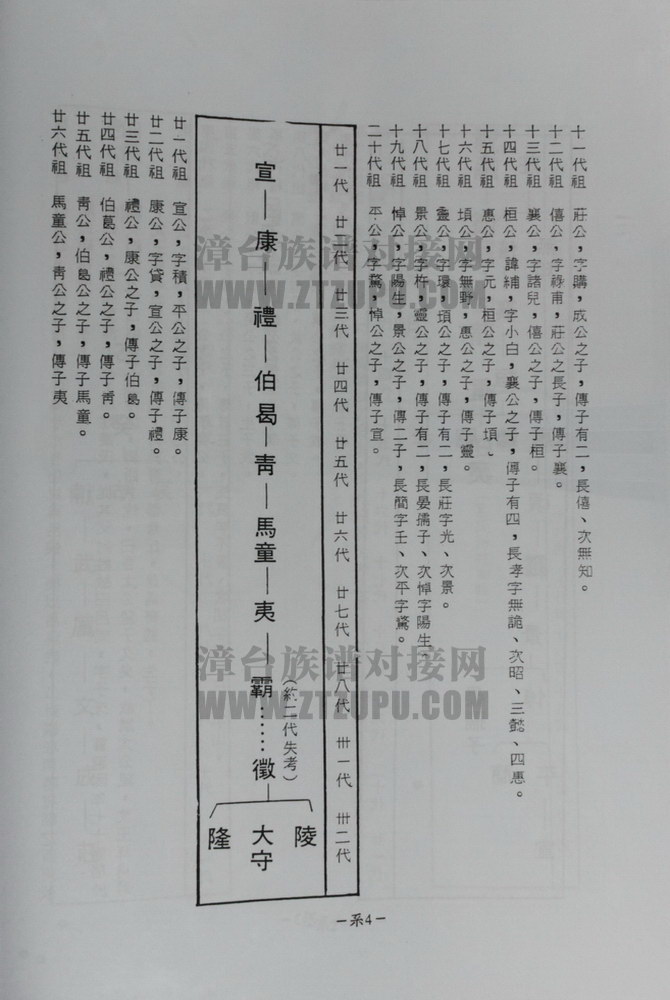 十一代祖 莊公，字購，成公之子，傳子有二，長僖、次無知。
十二代祖 僖公，字祿甫，莊公之長子，傳子襄。
十三代祖 襄公，字諸兒，僖公之子，傳子桓。
十四代祖 桓公，諱緽，字小白，襄公之子，傳子有四，長孝字無詭、次昭、三懿、四惠。
十五代祖 惠公，字元，桓公之子，傳子頃、
十六代祖 頃公，字無野，惠公之子，傳子靈。
十七代祖 靈公，字環，頃公之子，傳子有二，長莊字光、次景。
十八代祖 景公，字杵，靈公之子，傳子有二，長晏孺子、次悼字陽生、
十九代祖 悼公，字陽生，景公之子，傳二子，長簡字壬、次平字驁。
二十代祖 平公，字驁，悼公之子，傳子宣。
廿一代 廿二代 廿三代 廿四代 廿五代 廿六代 廿七代 廿八代 卅一代 卅二代
宣—康—禮—伯曷—靑—馬童—夷—霸……徵
（約二代失考）
陵
大守
隆
廿一代祖 宣公，字積，平公之子，傳子康。
廿二代祖 康公，字貸，宣公之子，傳子禮。
廿三代祖 禮公，康公之子，傳子伯曷。
廿四代祖 伯曷公，禮公之子，傳子靑。
廿五代祖 靑公，伯曷公之子，傳子馬童。
廿六代祖 馬童公，靑公之子，傳子夷
－系4－
漳台族谱对接网
WWW.ZTZUPU.COM
漳台族谱对接网
WWW.ZTZUPU.COM